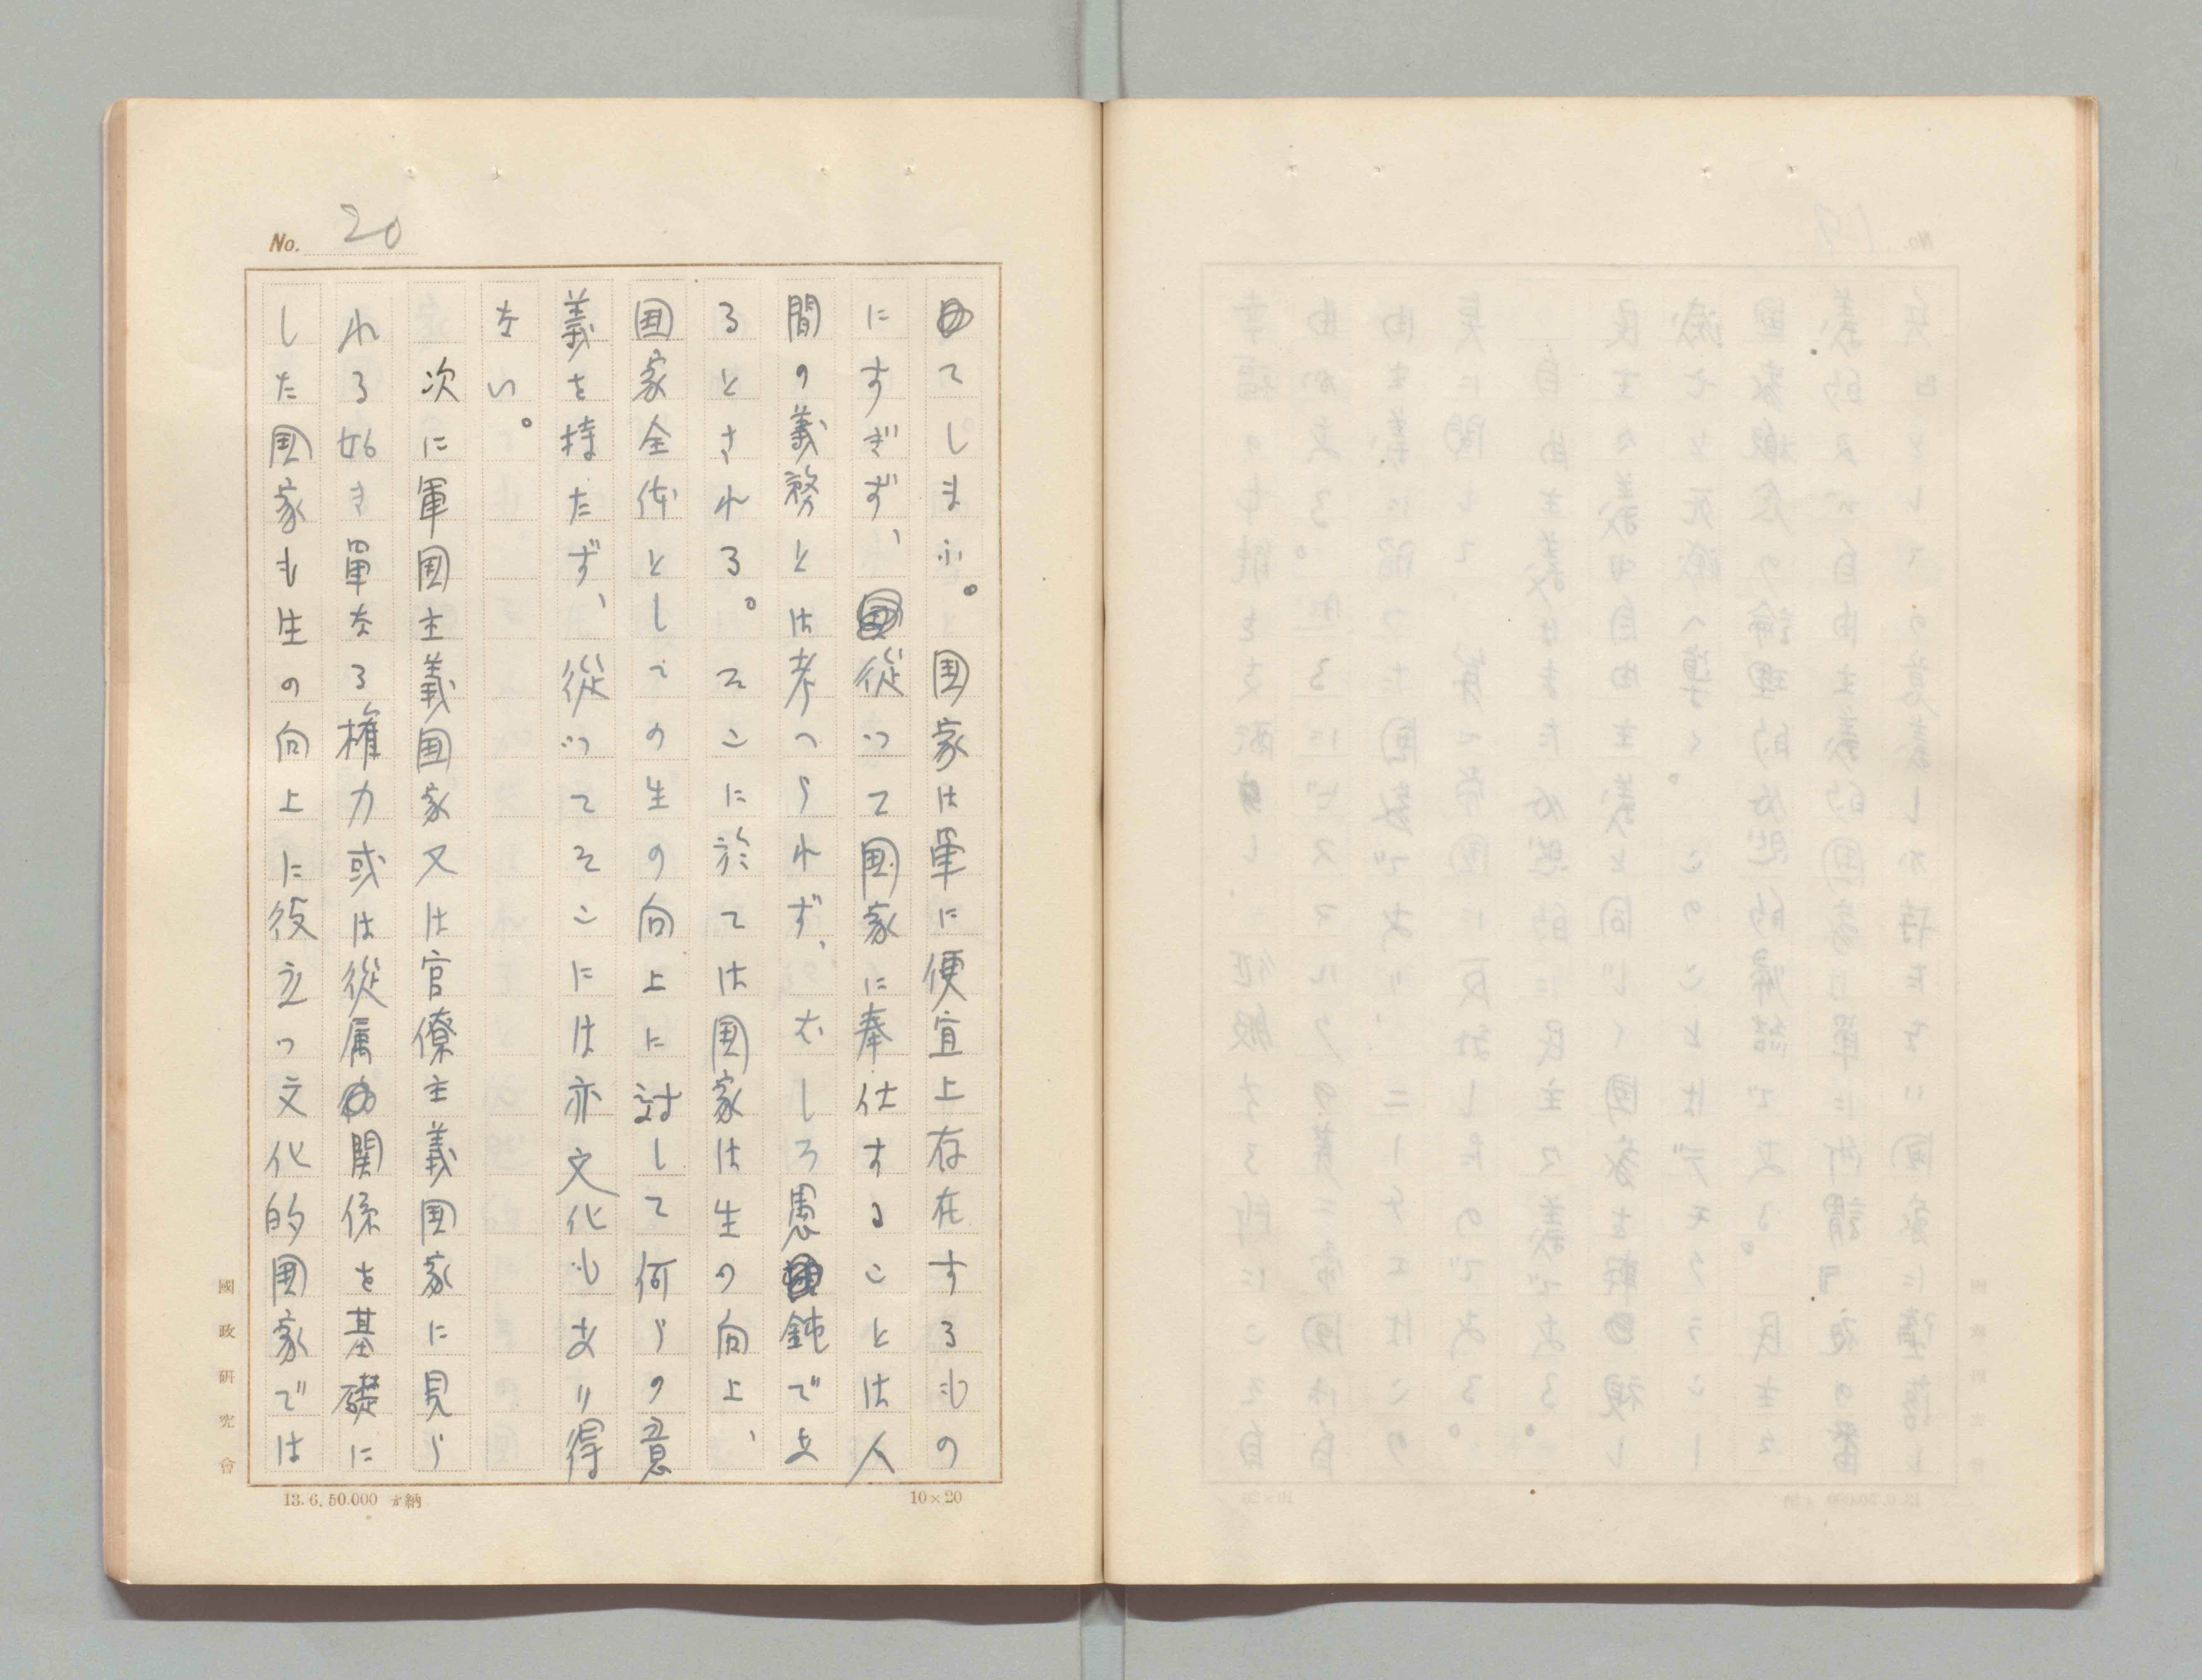 No. 20
てしまふ。国家は単に便宜上存在するもの
にすぎず、従つて国家に奉仕することは人
間の義務とは考へられず、むしろ愚鈍であ
るとされる。そこに於ては国家は生の向上、
国家全体としての生の向上に対して何らの意
義を持たず、従つてそこには亦文化もあり得
ない。
次に軍国主義国家又は官僚主義国家に見ら
れる如き単なる権力或は従属関係を基礎に
した国家も生の向上に役立つ文化的国家では
國政研究會
13.6.50.000 納
10×20